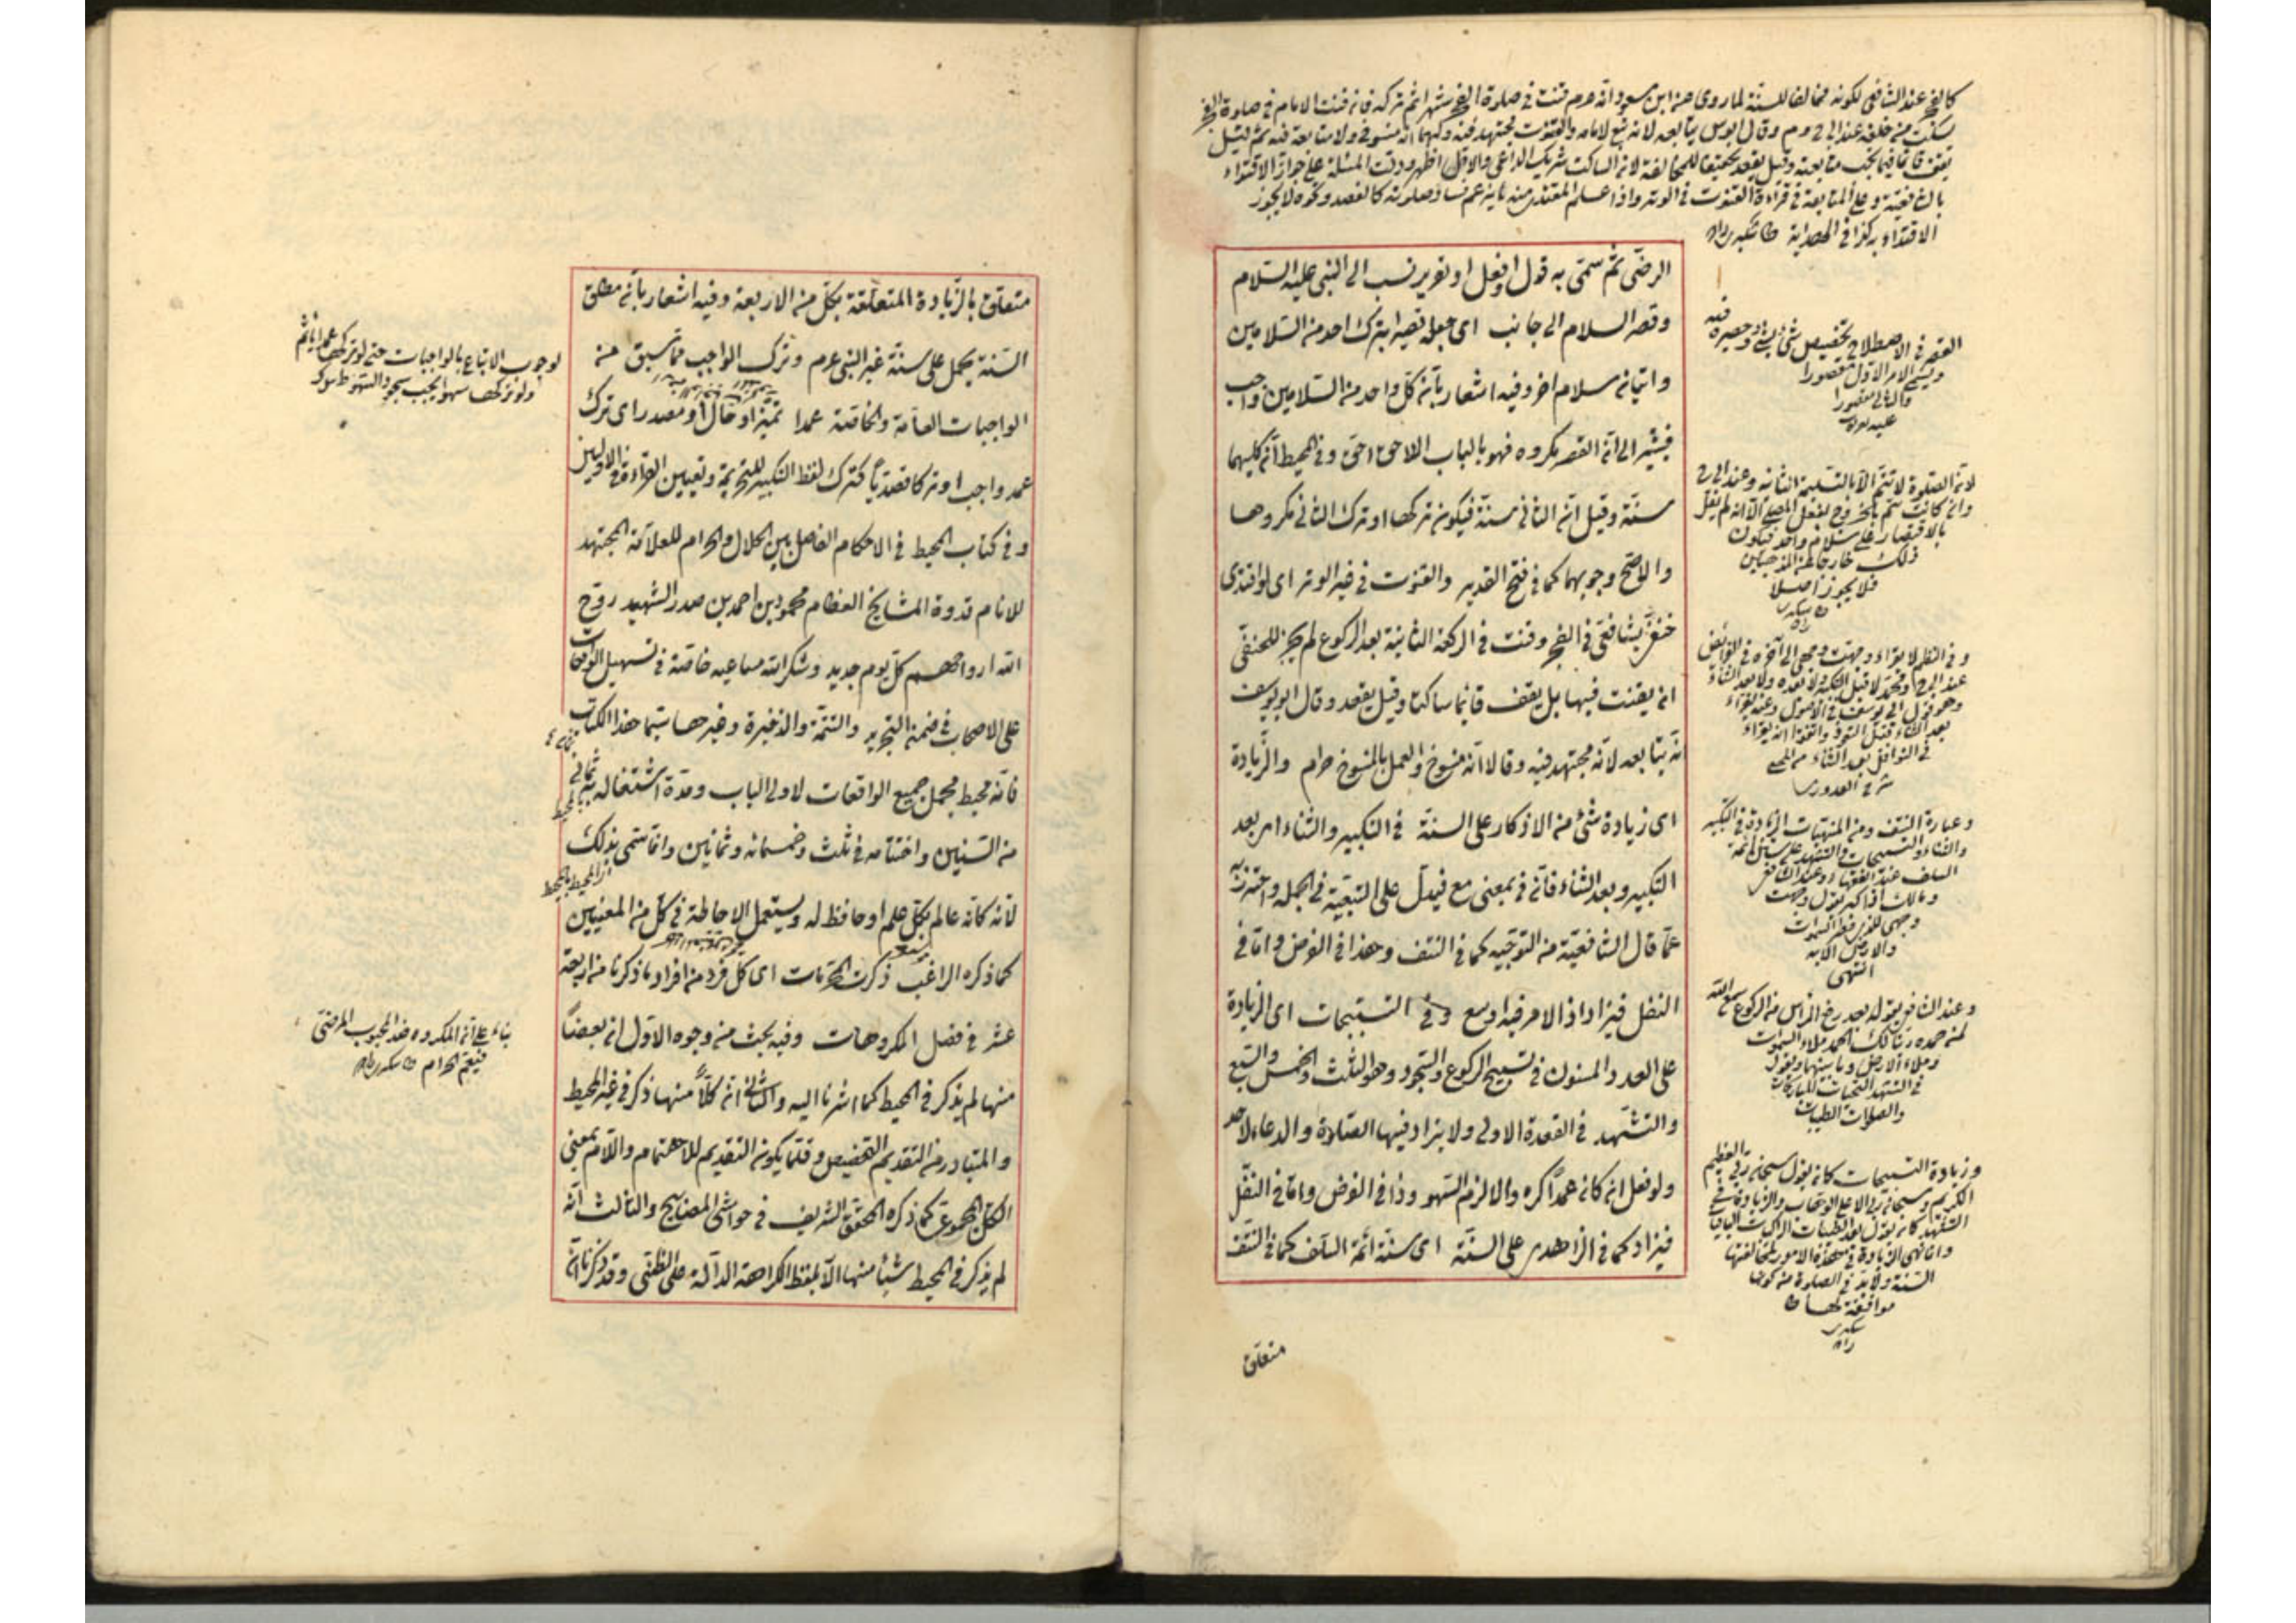 كالفجر عند الشافعى لكونه مخالفا للسنة لما روى عن ابن مسعود انه عم قنت فى صلوة الفجر شهرا ثم تركه فان قنت الامام فى صلوة الفجر
سكت من خلفه عند ابى ح وم وقال ابو س يتابعه لانه تبع لامامه والقنوت مجتهد فيه ولهما انه منسوخ ولا متابعة فيه ثم قيل
يقف قائما فيما يجب متابعته وقيل يقعد تحقيقا للمخالفة لان الساكت شريك الداعى والاول اظهر ودلت المسئلة على جواز الاقتداء
بالشافعية وعلى المتابعة فى قراءة القنوت فى الوتر واذا علم المقتدى منه ما يزعم فساد صلوته كالفصد ونحوه لا يجوز
الاقتداء به كذا فى الهداية
الرضى ثم سمى به قول او فعل او تقرير نسب الى النبى عليه السلام
وقصر السلام الى جانب اى جعله قصيرا بترك احد من السلامين
واتيان سلام اخر وفيه اشعار بان كل واحد من السلامين واجب
فيشير الى ان القصر مكروه فهو بالباب اللاحق احق وفى المحيط ان كليهما
سنة وقيل ان الثانى سنة فيكون تركها او ترك الثانى مكروها
والاصح وجوبهما كما فى فتح القدير والقنوت فى غير الوتر اى لو اقتدى
حنفى بشافعى فى الفجر وقنت فى الركعة الثانية بعد الركوع لم يجز للحنفى
ان يقنت فيها بل يقف قائما ساكتا وقيل يقعد وقال ابو يوسف
انه يتابعه لانه مجتهد فيه وقالا انه منسوخ والعمل بالمنسوخ حرام والزيادة
اى زيادة شئ من الاذكار على السنة فى التكبير والثناء اى بعد
التكبير وبعد الثناء فان فى بمعنى مع فيدل على التبعية فى الجملة واحترز به
عما قال الشافعية من التوجيه كما فى النتف وهذا فى الفرض واما فى
النفل فيزاد اذ الامر فيه اوسع وفى التسبيحات اى الزيادة
على العدد المسنون فى تسبيح الركوع والسجود وهو الثلث والخمس والسبع
والتشهد فى القعدة الاولى ولا يزاد فيها الصلاة والدعاء لاحد
ولو فعل ان كان عمدا كره والا لزم السهو وذا فى الفرض واما فى النفل
فيزاد كما فى الزاهدى على السنة اى سنة ائمة السلف كما فى النتف
القصر فى الاصطلاح تخصيص شئ بشئ وحصره فيه
ويسمى الامر الاول مقصورا
والثانى مقصورا
عليه
لان الصلوة لا تتم الا بالتسليمة الثانية وعند ابى ح
وان كانت تتم بالخروج بفعل المصلى الا انه لم يقل
بالاقتصار على سلام واحد فيكون
ذلك خارجا عن المذهبين
فلا يجوز اصلا
وفى النظم لا يقراء وجهت وجهى الى آخره فى الفرائض
عند ابى ح ومحمد لا قبل التكبير ولا بعده ولا بعد الثناء
وهو قول ابى يوسف فى الاصول وعنه يقراء
بعد الثناء قبل التعوذ واتفقوا انه يقراء
فى النوافل بعد الثناء
شرح القدورى
وعبارة النتف ومن المنهيات الزيادة فى التكبير
والثناء والتسبيحات والتشهد على سنن ائمة
السلف عند الفقهاء وعند الشافعى
ومالك اذا كبر يقول وجهت
وجهى للذى فطر السموات
والارض الاية
انتهى
وعند الشافعى يقول بعد رفع الرأس من الركوع سمع الله
لمن حمده ربنا لك الحمد ملاء السموات
وملاء الارض وما بينهما ويقول
فى التشهد التحيات المباركات
والصلوات الطيبات
وزيادة التسبيحات كان يقول سبحان ربى العظيم
الكريم وسبحان ربى الاعلى الوهاب والزيادة فى
التشهد كان يقول بعد الطيبات الزاكيات
وانما نهى الزيادة فى هذه الامور لمخالفتها
السنة ولا بد فى الصلوة من كونها
موافقة لها
متعلق
متعلق بالزيادة المتعلقة بكل من الاربعة وفيه اشعار بان مطلق
السنة يحمل على سنة غير النبى عم وترك الواجب مما سبق من
الواجبات العامة والخاصة عمدا تميز او حال او مصدر اى ترك
عمد واجب او تركا قصديا كترك لفظ التكبير للتحريمة وتعيين القراءة فى الاوليين
وفى كتاب المحيط فى الاحكام الفاصل بين الحلال والحرام للعلامة المجتهد
للانام قدوة المشايخ العظام محمود بن احمد بن صدر الشهيد روح
الله ارواحهم كل يوم جديد وشكر الله مساعيه خاصة فى تسهيل الواقعات
على الاصحاب فى ضمن التجريد والتتمة والذخيرة وغيرها سيما هذا الكتاب
فانه محيط مجمل جميع الواقعات لاولى الباب ومدة اشتغاله به ثمانى
من السنين واختتامه فى ثلث وخمسمائه وثمانين وانما سمى بذلك
لانه كانه عالم بكل علم او حافظ له ويستعمل الاحاطة فى كل من المعنيين
كما ذكره الراغب ذكرت المحرمات اى كل فرد من افراد ما ذكرنا من اربعة
عشر فى فصل المكروهات وفيه بحث من وجوه الاول ان بعضا
منها لم يذكر فى المحيط كما اشرنا اليه والثانى ان كلا منها ذكر فى غير المحيط
والمتبادر من التقديم التخصيص وقلما يكون التقديم للاهتمام واللام بمعنى
الكل المجموعى كما ذكره المحقق الشريف فى حواشى المصابيح والثالث انه
لم يذكر فى المحيط شيئا منها الا بلفظ الكراهة الدالة على الظنى وقد ذكرنا انه
لوجوب الاتباع بالواجبات حتى لو تركها عمدا ياثم
ولو تركها سهوا يجب سجود السهو
بناء على ان المكروه ضد المحبوب المرضى
فيعم الحرام